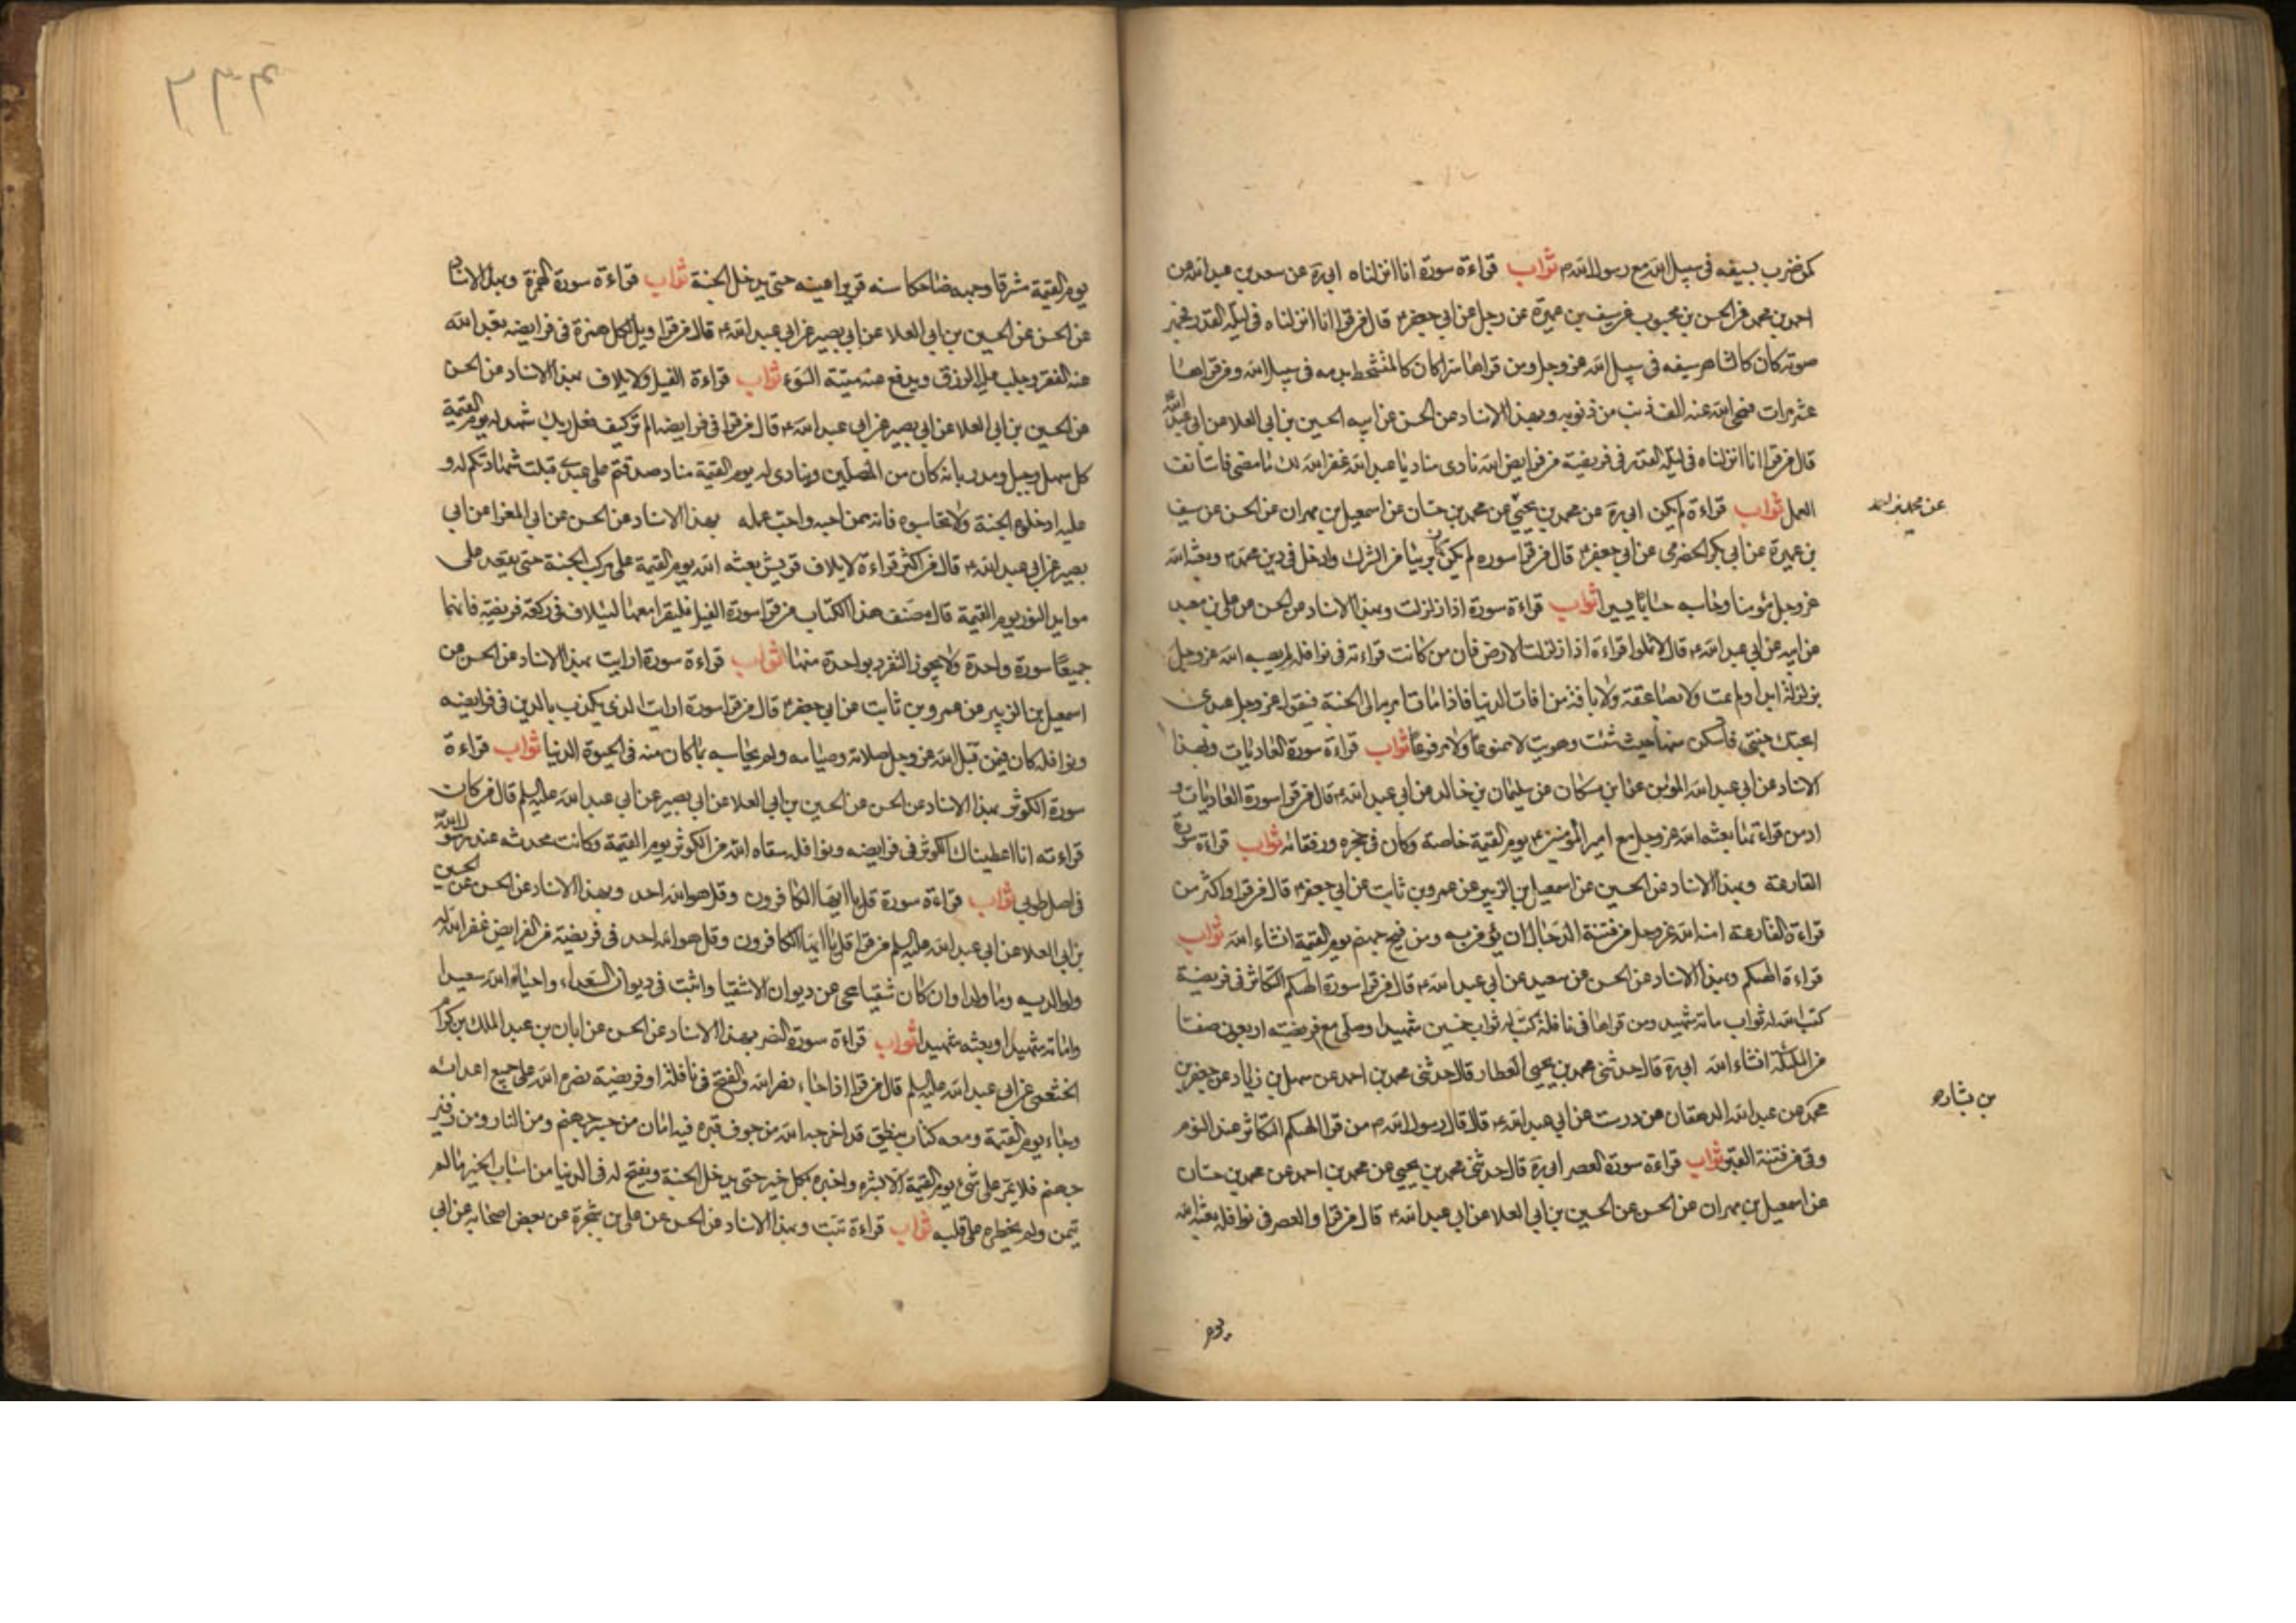 كمن ضرب بسيفه في سبيل الله مع رسول الله ص ثواب قراءة سورة انا انزلناه ابي ره عن سعد بن عبد الله عن
احمد بن محمد عن الحسن بن محبوب عن سيف بن عميرة عن رجل عن ابي جعفر ع قال من قرا انا انزلناه في ليلة القدر فجهر
صوته كان كالشاهر سيفه في سبيل الله عز وجل ومن قراها سرا كان كالمتشحط بدمه في سبيل الله ومن قراها
عشر مرات محى الله عنه الف ذنب من ذنوبه وبهذا الاسناد عن الحسن عن ابيه الحسين بن ابي العلا عن ابي عبد الله
قال من قرا انا انزلناه في ليلة القدر في فريضة من فرايض الله نادى مناد يا عبد الله غفر الله لك ما مضى فاستانف
العمل ثواب قراءة لم يكن ابي ره عن محمد بن يحيى عن محمد بن حسان عن اسمعيل بن مهران عن الحسن عن سيف
عن محمد بن احمد
بن عميرة عن ابي بكر الحضرمي عن ابي جعفر ع قال من قرا سورة لم يكن كان بريئا من الشرك وادخل في دين محمد ص وبعثه الله
عز وجل مؤمنا وحاسبه حسابا يسيرا ثواب قراءة سورة اذا زلزلت وبهذا الاسناد عن الحسن عن علي بن معبد
عن ابيه عن ابي عبد الله ع قال لا تملوا قراءة اذا زلزلت الارض فان من كانت قراءته في نوافله لم يصبه الله عز وجل
بزلزلة ابدا ولم يمت ولا بصاعقة ولا بافة من افات الدنيا فاذا مات امر به الى الجنة فيقول عز وجل عبدي
ابحتك جنتي فاسكن منها حيث شئت وهويت لا ممنوعا ولا مرفوعا ثواب قراءة سورة العاديات وبهذا
الاسناد عن ابي عبد الله المؤمن عن ابن مسكان عن سليمان بن خالد عن ابي عبد الله ع قال من قرا سورة العاديات و
ادمن قراءتها بعثه الله عز وجل مع امير المؤمنين ع يوم القيمة خاصة وكان في حجره ورفقائه ثواب قراءة سورة
القارعة وبهذا الاسناد عن الحسين عن اسمعيل بن الزبير عن عمرو بن ثابت عن ابي جعفر ع قال من قرا واكثر من
قراءة القارعة امنه الله عز وجل من فتنة الدجال ان يؤمن به ومن فيح جهنم يوم القيمة انشاء الله ثواب
قراءة الهيكم وبهذا الاسناد عن الحسن عن سعيد عن ابي عبد الله ع قال من قرا سورة الهيكم التكاثر في فريضة
كتب الله له ثواب مائة شهيد ومن قراها في نافلة كتب له ثواب خمسين شهيدا وصلى مع فريضته اربعون صفا
من الملئكة انشاء الله ابي ره قال حدثني محمد بن يحيى العطار قال حدثني محمد بن احمد عن سهل بن زياد عن جعفر بن
محمد عن عبد الله الدهقان عن درست عن ابي عبد الله ع قال قال رسول الله ص من قرا الهيكم التكاثر عند النوم
بن بشار ه
وقي من فتنة القبر ثواب قراءة سورة العصر ابي ره قال حدثني محمد بن يحيى عن محمد بن احمد عن محمد بن حسان
عن اسمعيل بن مهران عن الحسن عن الحسين بن ابي العلا عن ابي عبد الله ع قال من قرا والعصر في نوافله بعثه الله
يوم
يوم القيمة مشرقا وجهه ضاحكا سنه قريرا عينه حتى يدخل الجنة ثواب قراءة سورة الهمزة وبهذا الاسناد
عن الحسن عن الحسين بن ابي العلا عن ابي بصير عن ابي عبد الله ع قال من قرا ويل لكل همزة في فرايضه بعد الله
عنه الفقر وجلب عليه الرزق ويدفع عنه ميتة السوء ثواب قراءة الفيل ولايلاف بهذا الاسناد عن الحسن
عن الحسين بن ابي العلا عن ابي بصير عن ابي عبد الله ع قال من قرا في فرايضه الم تر كيف فعل ربك شهد له يوم القيمة
كل سهل وجبل ومدر بانه كان من المصلين وينادي له يوم القيمة مناد صدقتم على عبدي قبلت شهادتكم له و
عليه ادخلوه الجنة ولا تحاسبوه فانه ممن احبه واحب عمله بهذا الاسناد عن الحسن عن ابي المغرا عن ابي
بصير عن ابي عبد الله ع قال من اكثر قراءة لايلاف قريش بعثه الله يوم القيمة على مركب الجنة حتى يقعد على
موايد النور يوم القيمة قال مصنف هذا الكتاب من قرا سورة الفيل فليقرا معها لئيلاف في ركعة فريضة فانهما
جميعا سورة واحدة ولا يجوز التفرد بواحدة منهما ثواب قراءة سورة ارايت بهذا الاسناد عن الحسن عن
اسمعيل بن الزبير عن عمرو بن ثابت عن ابي جعفر ع قال من قرا سورة ارايت الذي يكذب بالدين في فرايضه
ونوافله كان فيمن قبل الله عز وجل صلاته وصيامه ولم يحاسبه بما كان منه في الحيوة الدنيا ثواب قراءة
سورة الكوثر بهذا الاسناد عن الحسن عن الحسين بن ابي العلا عن ابي بصير عن ابي عبد الله عليه السلم قال من كانت
قراءته انا اعطيناك الكوثر في فرايضه ونوافله سقاه الله من الكوثر يوم القيمة وكانت محدثه عند رسول الله
في اصل طوبى ثواب قراءة سورة قل يا ايها الكافرون وقل هو الله احد وبهذا الاسناد عن الحسن عن الحسين
بن ابي العلا عن ابي عبد الله عليه السلم من قرا قل يا ايها الكافرون وقل هو الله احد في فريضة من الفرايض غفر الله له
ولوالديه وما ولدا وان كان شقيا محي عن ديوان الاشقيا واثبت في ديوان السعداء واحياه الله سعيدا
واماته شهيدا وبعثه شهيدا ثواب قراءة سورة النصر بهذا الاسناد عن الحسن عن ابان بن عبد الملك عن كرام
الخثعمي عن ابي عبد الله عليه السلم قال من قرا اذا جاء نصر الله والفتح في نافلة او فريضة نصره الله على جميع اعدائه
وجاء يوم القيمة ومعه كتاب ينطق قد اخرجه الله من جوف قبره فيه امان من جسر جهنم ومن النار ومن زفير
جهنم فلا يمر على شيء يوم القيمة الا بشره واخبره بكل خير حتى يدخل الجنة ويفتح له في الدنيا من اسباب الخير مالم
يتمن ولم يخطر على قلبه ثواب قراءة تبت وبهذا الاسناد عن الحسن عن علي بن شجرة عن بعض اصحابه عن ابي